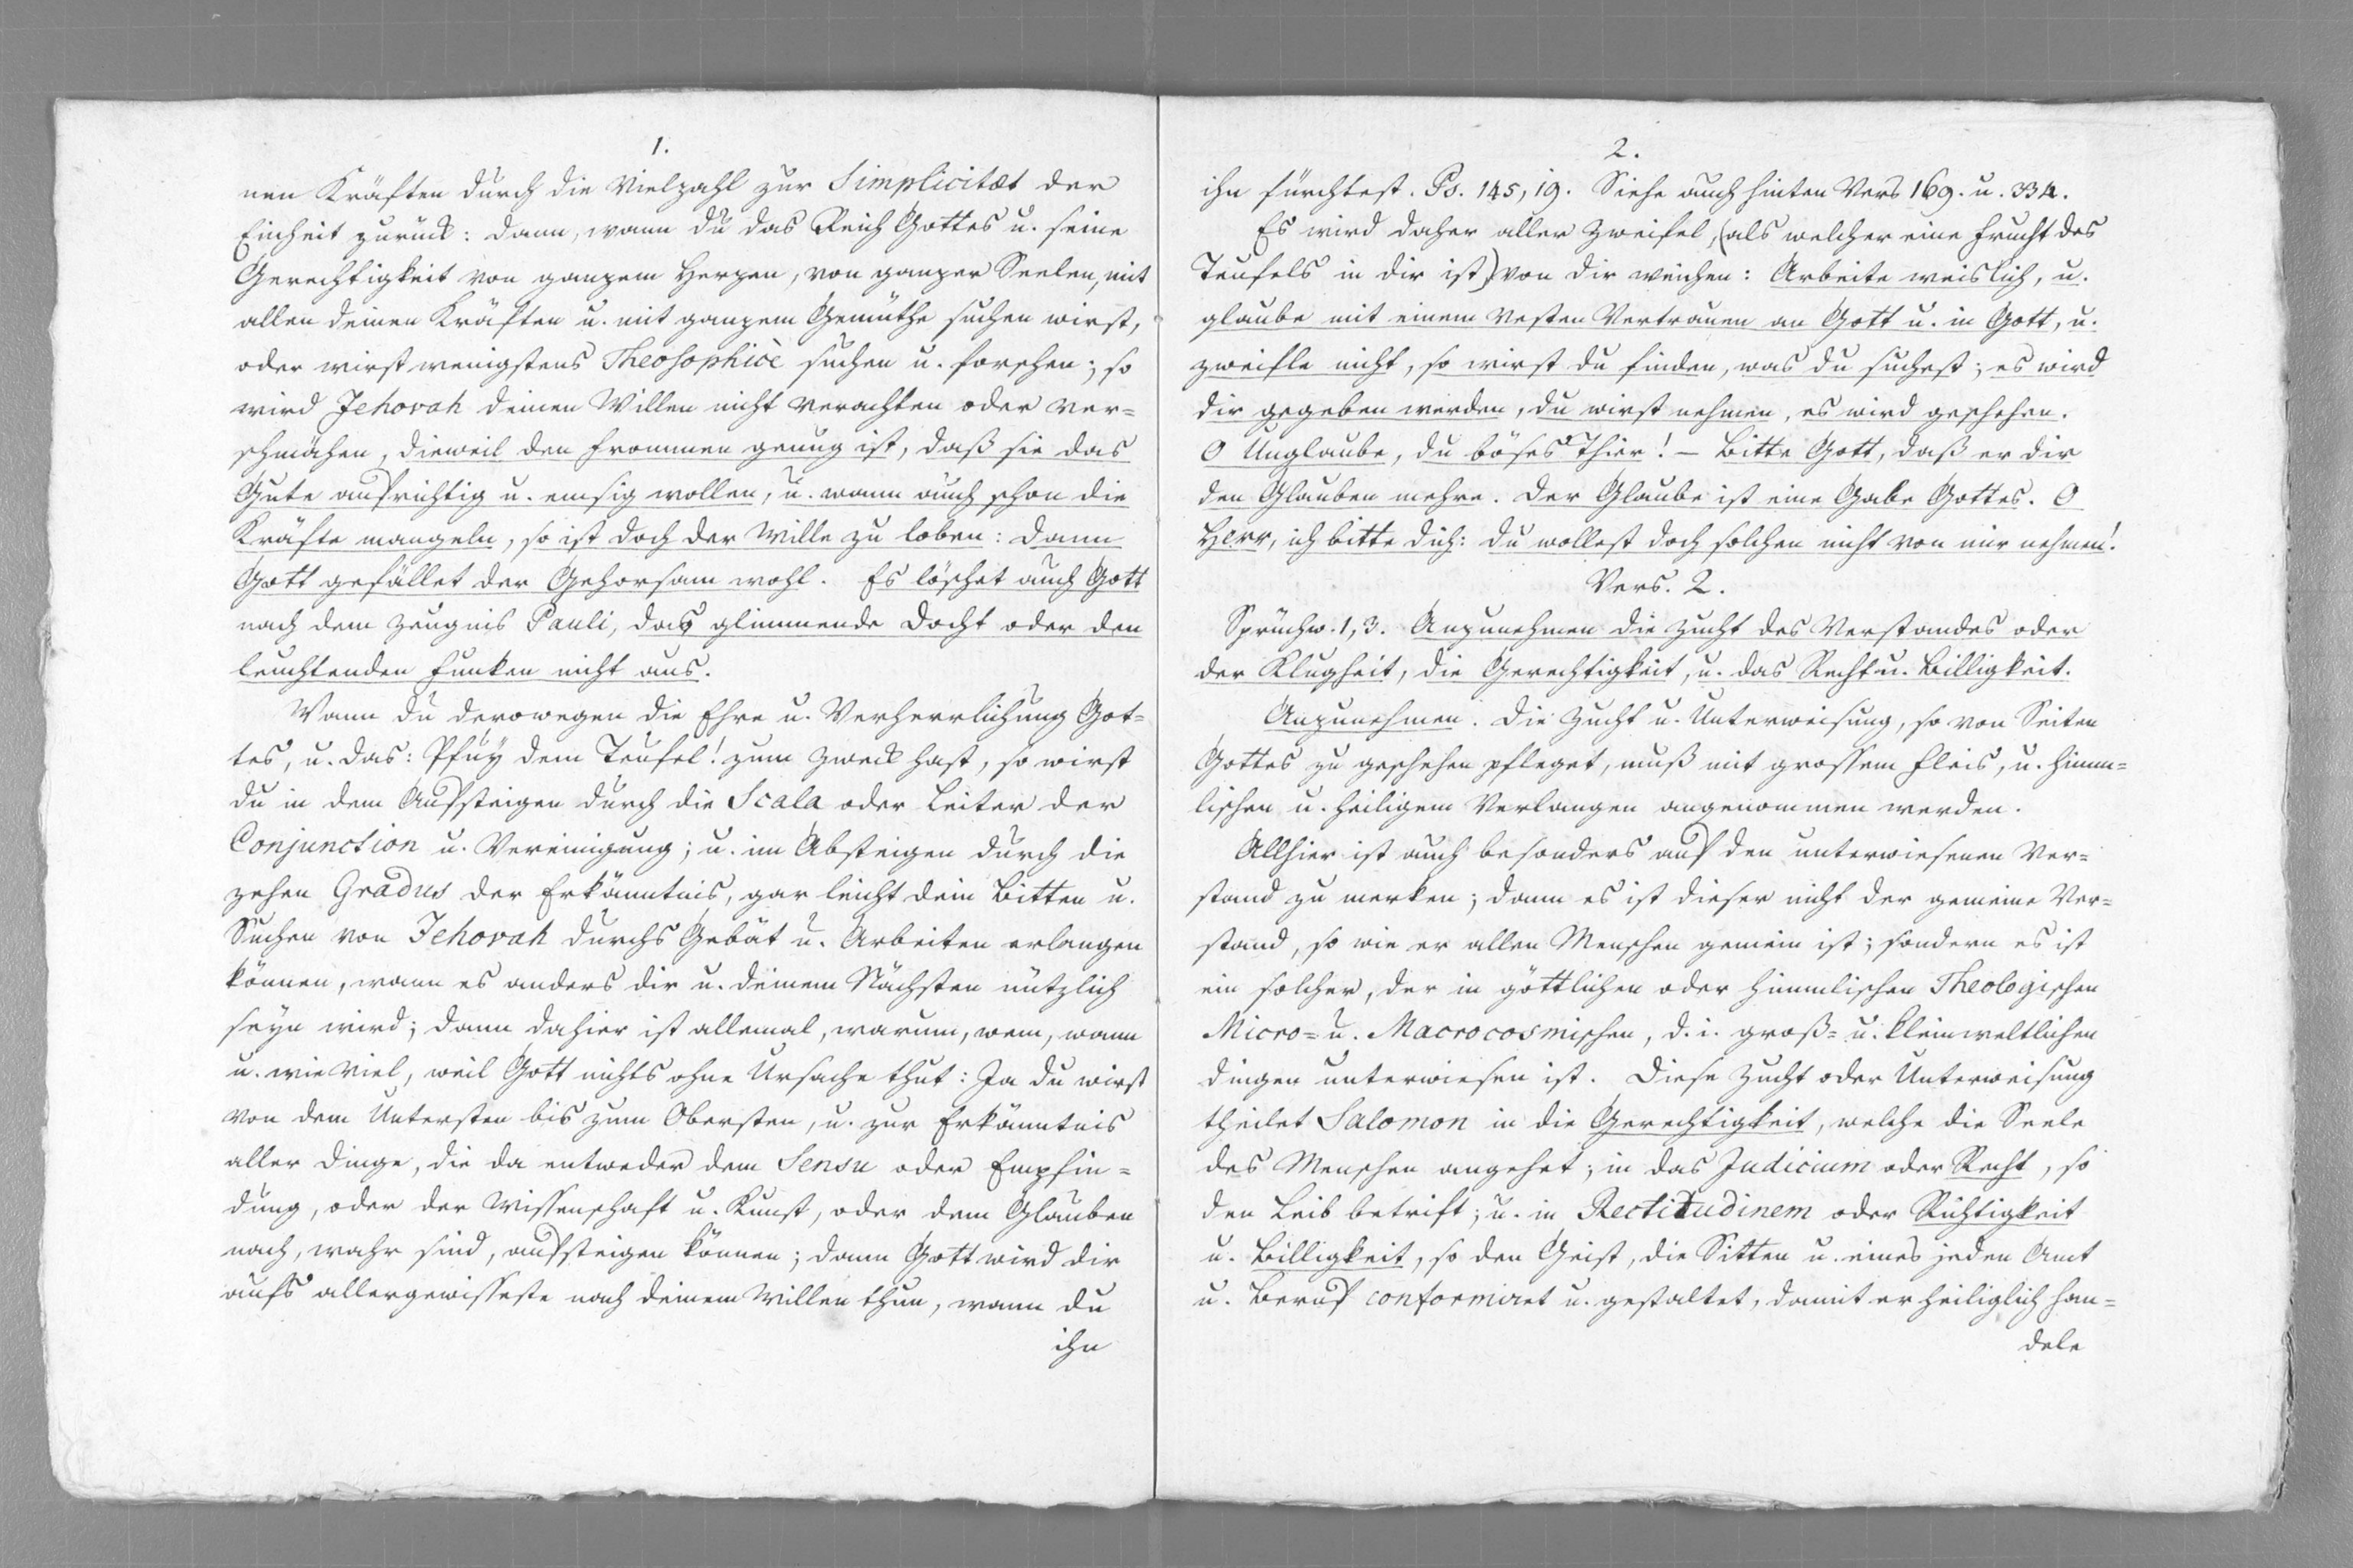 1.
nen Kräften durch die Vielzahl zur Simplicitæt der
Einheit zurück: dann, wann du das Reich Gottes u. seine
Gerechtigkeit von ganzem Herzen, von ganzer Seelen, mit
allen deinen Kräften u. mit ganzem Gemüthe suchen wirst,
oder wirst wenigstens Theosophicè suchen u. forschen; so
wird Jehovah deinen Willen nicht verachten oder ver=
schmähen, dieweil den Frommen genug ist, daß sie das
Gute aufrichtig u. emsig wollen, u. wann auch schon die
Kräfte mangeln, so ist doch der Wille zu loben: dann
Gott gefället der Gehorsam wohl. Es löschet auch Gott
nach dem Zeugnis Pauli, das glimmende Docht oder den
leuchtenden Funken nicht aus.
Wann du derowegen die Ehre u. Verherrlichung Got=
tes, u. das: Pfuy dem Teufel! zum Zweck hast, so wirst
du in dem Aufsteigen durch die Scala oder Leiter der
Conjunction u. Vereinigung; u. im Absteigen durch die
zehen Gradus der Erkänntnis, gar leicht dein Bitten u.
Suchen von Jehovah durchs Gebät u. Arbeiten erlangen
können, wann es anders dir u. deinem Nächsten nützlich
seyn wird; dann dahier ist allemal, warum, wem, wann
u. wie viel, weil Gott nichts ohne Ursache thut: Ja du wirst
von dem Untersten bis zum Obersten, u. zur Erkänntnis
aller Dinge, die da entweder dem Sensu oder Empfin=
dung, oder der Wissenschaft u. Kunst, oder dem Glauben
nach, wahr sind, aufsteigen können; dann Gott wird dir
aufs allergewisseste nach deinem Willen thun, wann du
ihn
2.
ihn fürchtest. Ps. 145, 19. Siehe auch hinten Vers 169. u. 334.
Es wird daher aller Zweifel, (als welcher eine Frucht des
Teufels in dir ist) von dir weichen: Arbeite weislich, u.
glaube mit einem vesten Vertrauen an Gott u. in Gott, u.
zweifle nicht, so wirst du finden, was du suchest; es wird
dir gegeben werden, du wirst nehmen, es wird geschehen.
O Unglaube, du böses Thier! – Bitte Gott, daß er dir
den Glauben mehre. Der Glaube ist eine Gabe Gottes. O
Herr, ich bitte dich: du wollest doch solchen nicht von mir nehmen!
Vers. 2.
Sprüchw. 1, 3. Anzunehmen die Zucht des Verstandes oder
der Klugheit, die Gerechtigkeit, u. das Recht u. Billigkeit.
Anzunehmen. Die Zucht u. Unterweisung, so von Seiten
Gottes zu geschehen pfleget, muß mit grossem Fleis, u. himm=
lischen u. heiligem Verlangen angenommen werden.
Allhier ist auch besonders auf den unterwiesenen Ver=
stand zu merken; dann es ist dieser nicht der gemeine Ver=
stand, so wie er allen Menschen gemein ist; sondern es ist
ein solcher, der in göttlichen oder himmlischen Theologischen
Micro= u. Macrocosmischen, d. i. groß= u. kleinweltlichen
Dingen unterwiesen ist. Diese Zucht oder Unterweisung
theilet Salomon in die Gerechtigkeit, welche die Seele
des Menschen angehet; in das Judicium oder Recht, so
den Leib betrift; u. in Rectitudinem oder Richtigkeit
u. Billigkeit, so den Geist, die Sitten u. eines jeden Amt
u. Beruf conformiret u. gestaltet, damit er heiliglich han=
dele